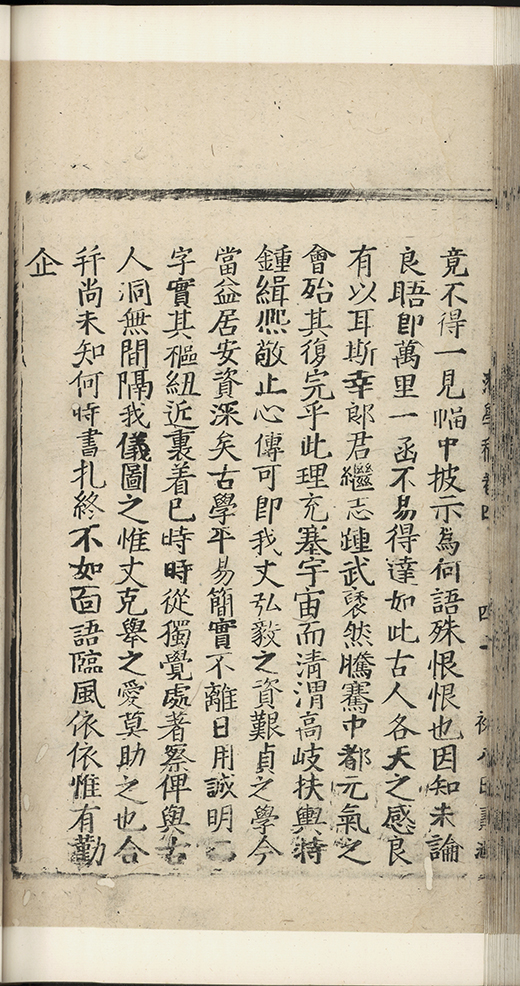 竟不得一見幅中披示為何語殊恨恨也因知未論
良晤即萬里一函不易得達如此古人各天之感良
有以耳斯幸郎君繼志踵武褎然騰騫中都元氣之
會殆其復完乎此理充塞宇宙而清渭高岐扶輿特
鍾緝熈敬止心傳可即我丈弘毅之資艱貞之學今
當益居安資深矣古學平易簡實不離日用誠明二
字實其樞紐近裏着己時時從獨覺處著察俾與古
人洞無間隔我儀圖之惟丈克舉之愛莫助之也合
幷尚未知何時書扎終不如面語臨風依依惟有勤
企